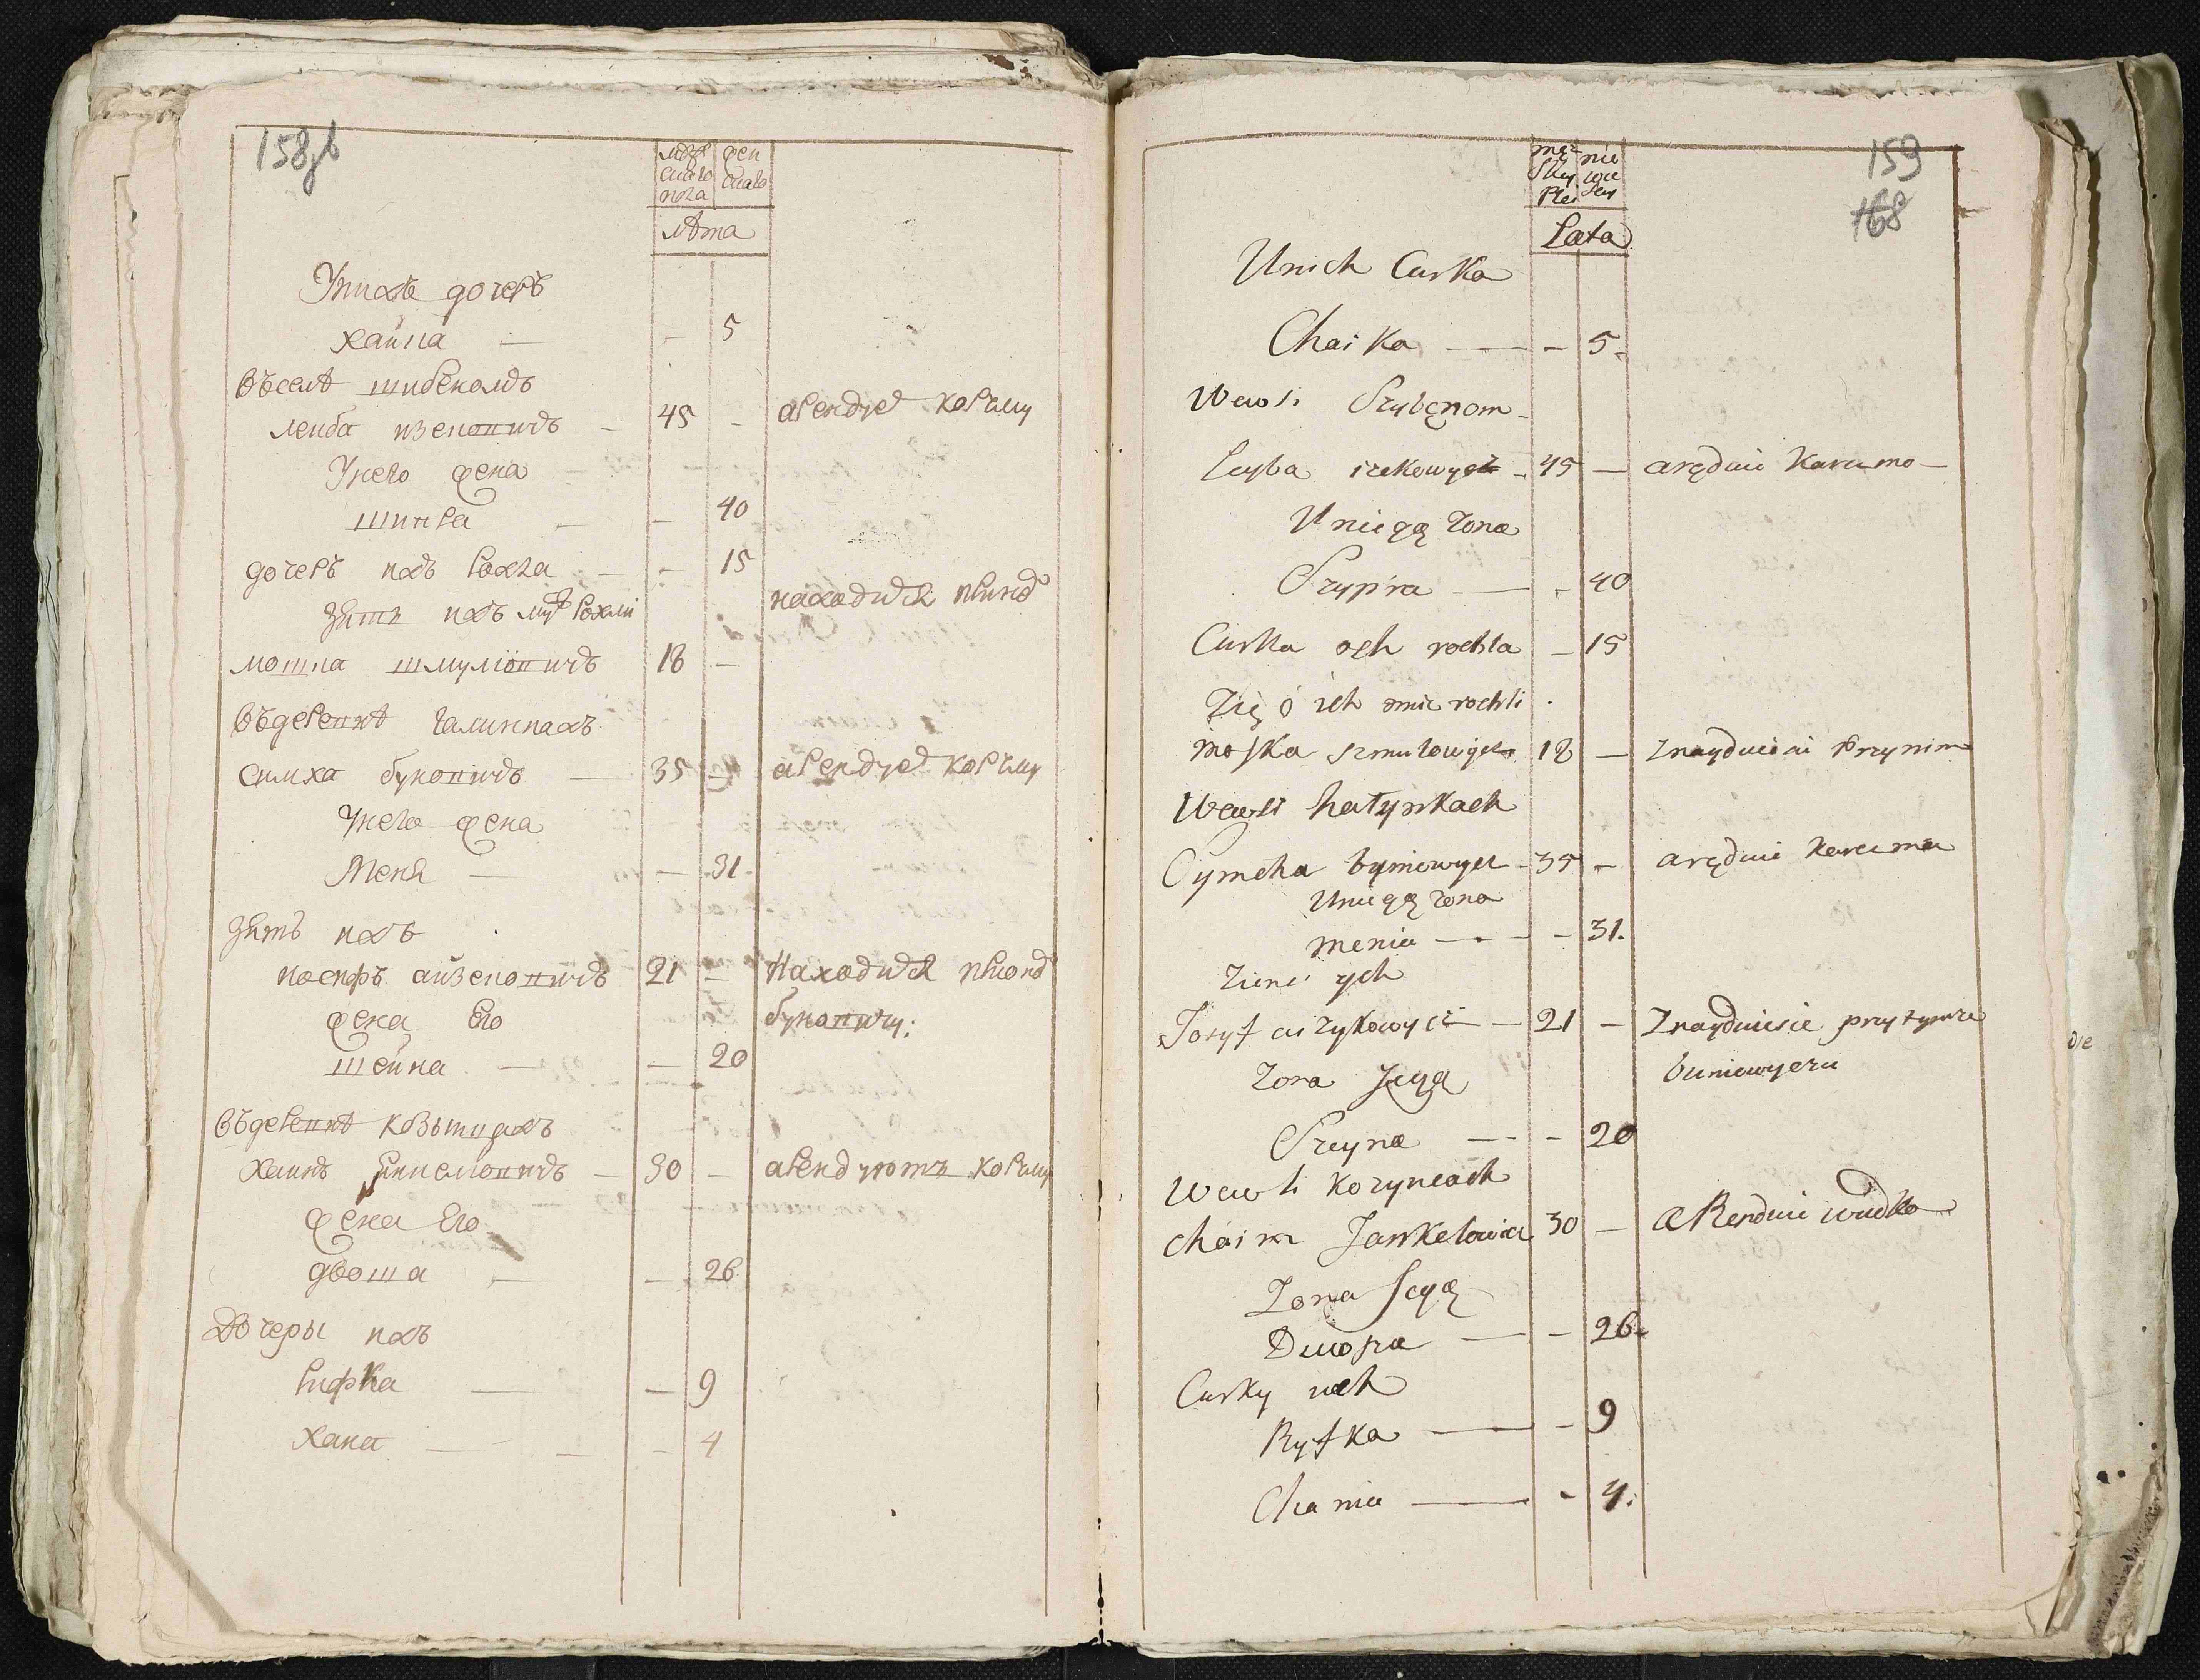 158об
муже
скаго
пола
жен
скаго
лѣта
Унихъ дочеръ
хайка — - 5
Въселѣ шибеномъ
лейба изековичъ - 45 - арендуетъ корчму
Унего жена
шипра - - 40
дочеръ ихъ рохла - - 15
зять ихъ мужъ рохли находится принемъ
мошка шмулiовичъ 18 -
Въдеревнѣ галинкахъ
симха буновичъ - 35 - арендуетъ корчму
Унего жена
Меня - - 31.
зять ихъ
иосифъ айзековичъ 21 - Находится приономъ
жена Его буновичу;
шейна - - 20
Въдеревнѣ козытцахъ
хаимъ янкелiовичъ - 30 - арендуютъ корчму
жена Его
двоша - - 26
Дочеры ихъ
рифка - - 9
хана - - 4
159
168
męz
sky
Plei
nie
wie
scy
Lata
Unich Curka
Chaika - - 5.
Wewsi Szybęnom -
Leyba izekowycz - 45 - aręduie Karczmo -
Uniegą zona
Szypra - - 40
Curka ych rochla - 15
Zię ó ich mıc rochli
moszka szmulowycz 18 - Znayduieśi Przynim
Wewsi hałynkach
Symcha byniowycz - 35 - aręduie Karczma
Uniegą zona
menia - - 31.
Zienć ych
Josyf aizykowycz - 21 - Znayduiesie przytymze
Zona Jegą buniowyczu
Szeyna - - 20
Wewsi kozyncach
chaim Jankelowicz 30 - aRenduie wudko
Zona Jegą
Dwosza - - 26.
Curky ich
Ryfka - - 9
Chania - - 4.